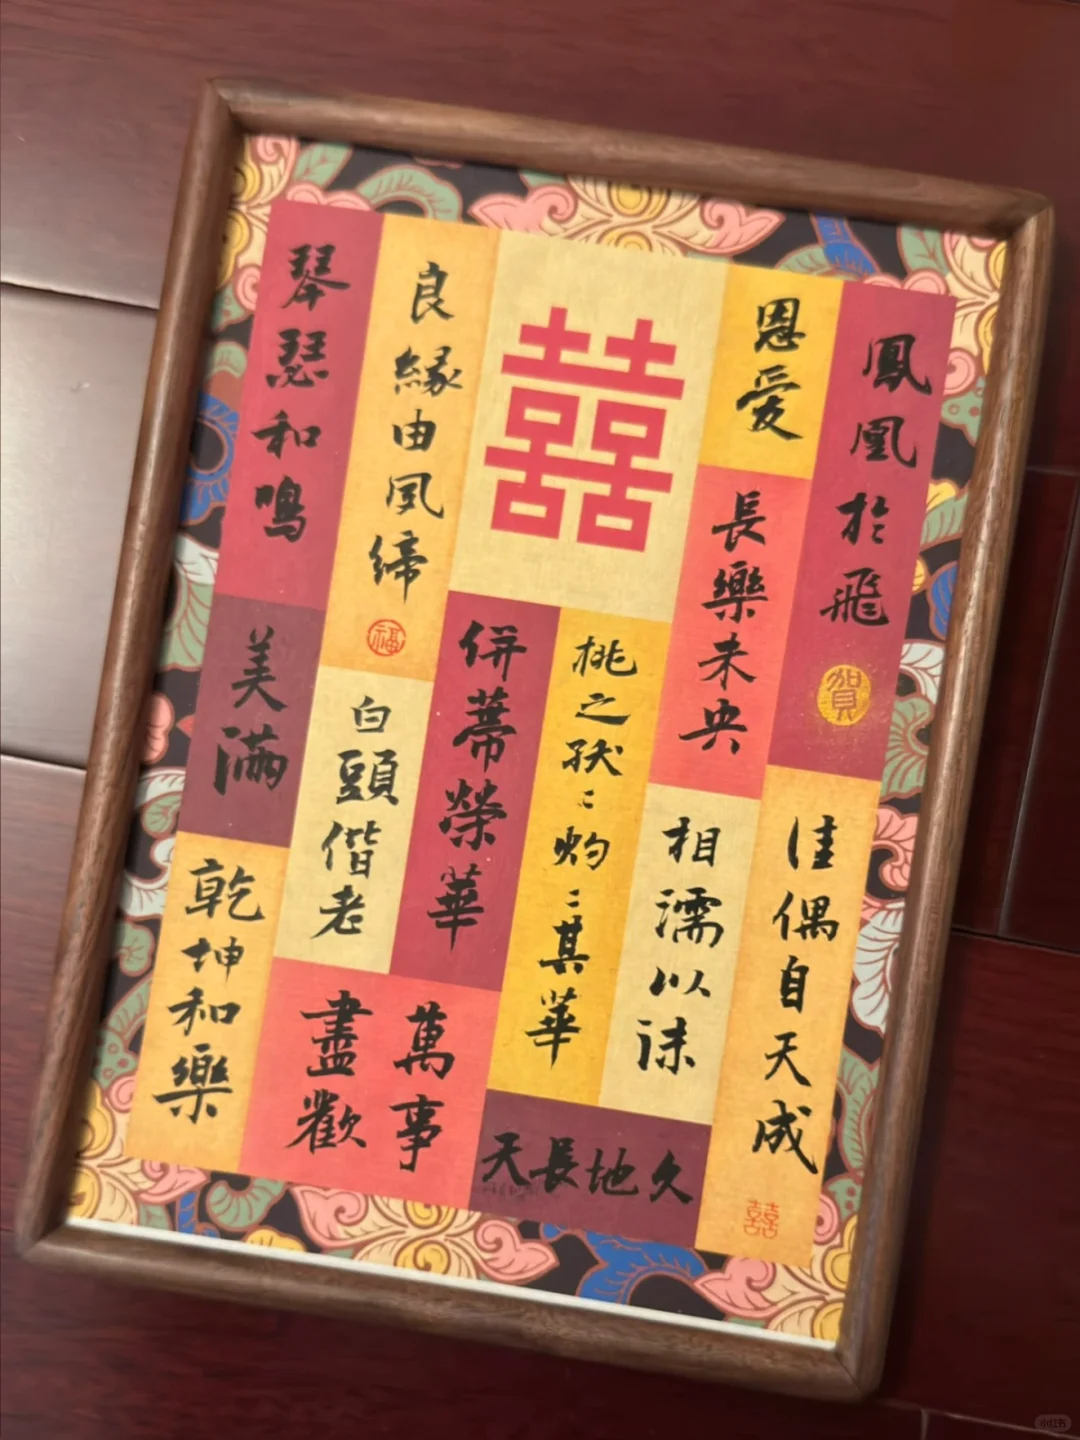 鳳凰於飛
賀
佳偶自天成
囍
恩愛
長樂未央
相濡以沫
囍
桃之枖〻灼〻其華
併蒂榮華
天長地久
良緣由夙締
福
白頭偕老
萬事
盡歡
琴瑟和鳴
美滿
乾坤和樂